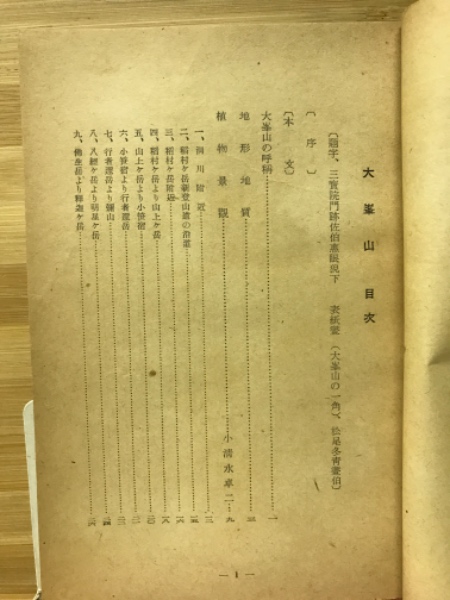 大峯山目次
〔題字、三寶院門跡佐伯恵眼猊下 表紙畫(大峯山の一角)、松尾冬青畫伯〕
〔序〕
〔本文〕
大峯山の呼稱……一
地形地質……三
植物景觀……小淸水卓二…九
一、洞川附近……三
二、稻村ケ岳新登山道の沿道……
三、稻村ケ岳附近……
四、稻村ケ岳より山上ケ岳……
五、山上ケ岳より小笹宿……
六、小笹宿より行者還岳……
七、行者還岳より彌山……
八、八經ケ岳より明星ケ岳……
九、佛生岳より釋迦ケ岳……
— 1 —